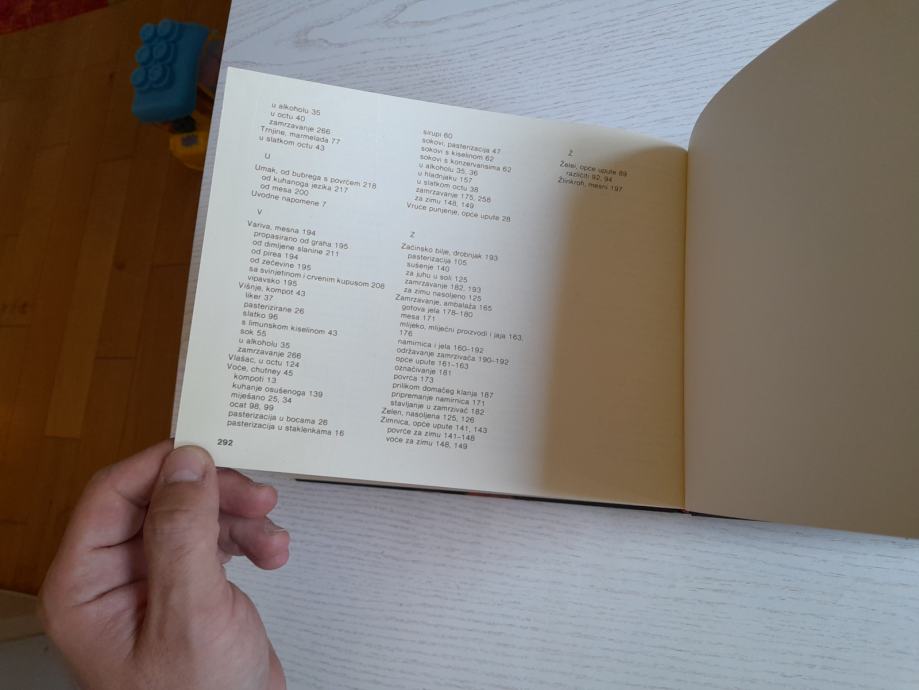 u alkoholu 35
u octu 40
zamrzavanje 266
Trnjine, marmelada 77
u slatkom octu 43
U
Umak, od bubrega s povrćem 218
od kuhanoga jezika 217
od mesa 200
Uvodne napomene 7
V
Variva, mesna 194
propasirano od graha 195
od dimljene slanine 211
od pirea 194
od zečevine 195
sa svinjetinom i crvenim kupusom 208
vipavsko 195
Višnje, kompot 43
liker 37
pasterizirane 26
slatko 96
s limunskom kiselinom 43
sok 55
u alkoholu 35
zamrzavanje 266
Vlašac, u octu 124
Voće, chutney 45
kompoti 13
kuhanje osušenoga 139
miješano 25, 34
ocat 98, 99
pasterizacija u bocama 26
pasterizacija u staklenkama 16
sirupi 60
sokovi, pasterizacija 47
sokovi s kiselinom 62
sokovi s konzervansima 62
u alkoholu 35, 36
u hladnjaku 157
u slatkom octu 38
zamrzavanje 175, 258
za zimu 148, 149
Vruće punjenje, opće upute 28
Z
Začinsko bilje, drobnjak 193
pasterizacija 105
sušenje 140
za juhu u soli 125
zamrzavanje 182, 193
za zimu nasoljeno 125
Zamrzavanje, ambalaža 165
gotova jela 178–180
mesa 171
mlijeko, mliječni proizvodi i jaja 163,
176
namirnica i jela 160–192
održavanje zamrzivača 190–192
opće upute 161–163
označivanje 181
povrća 173
prilikom domaćeg klanja 187
pripremanje namirnica 171
stavljanje u zamrzivač 182
Zelen, nasoljena 125, 126
Zimnica, opće upute 141, 143
povrće za zimu 141–148
voće za zimu 148, 149
Ž
Želei, opće upute 89
različiti 92, 94
Žlinkrofi, mesni 197
292